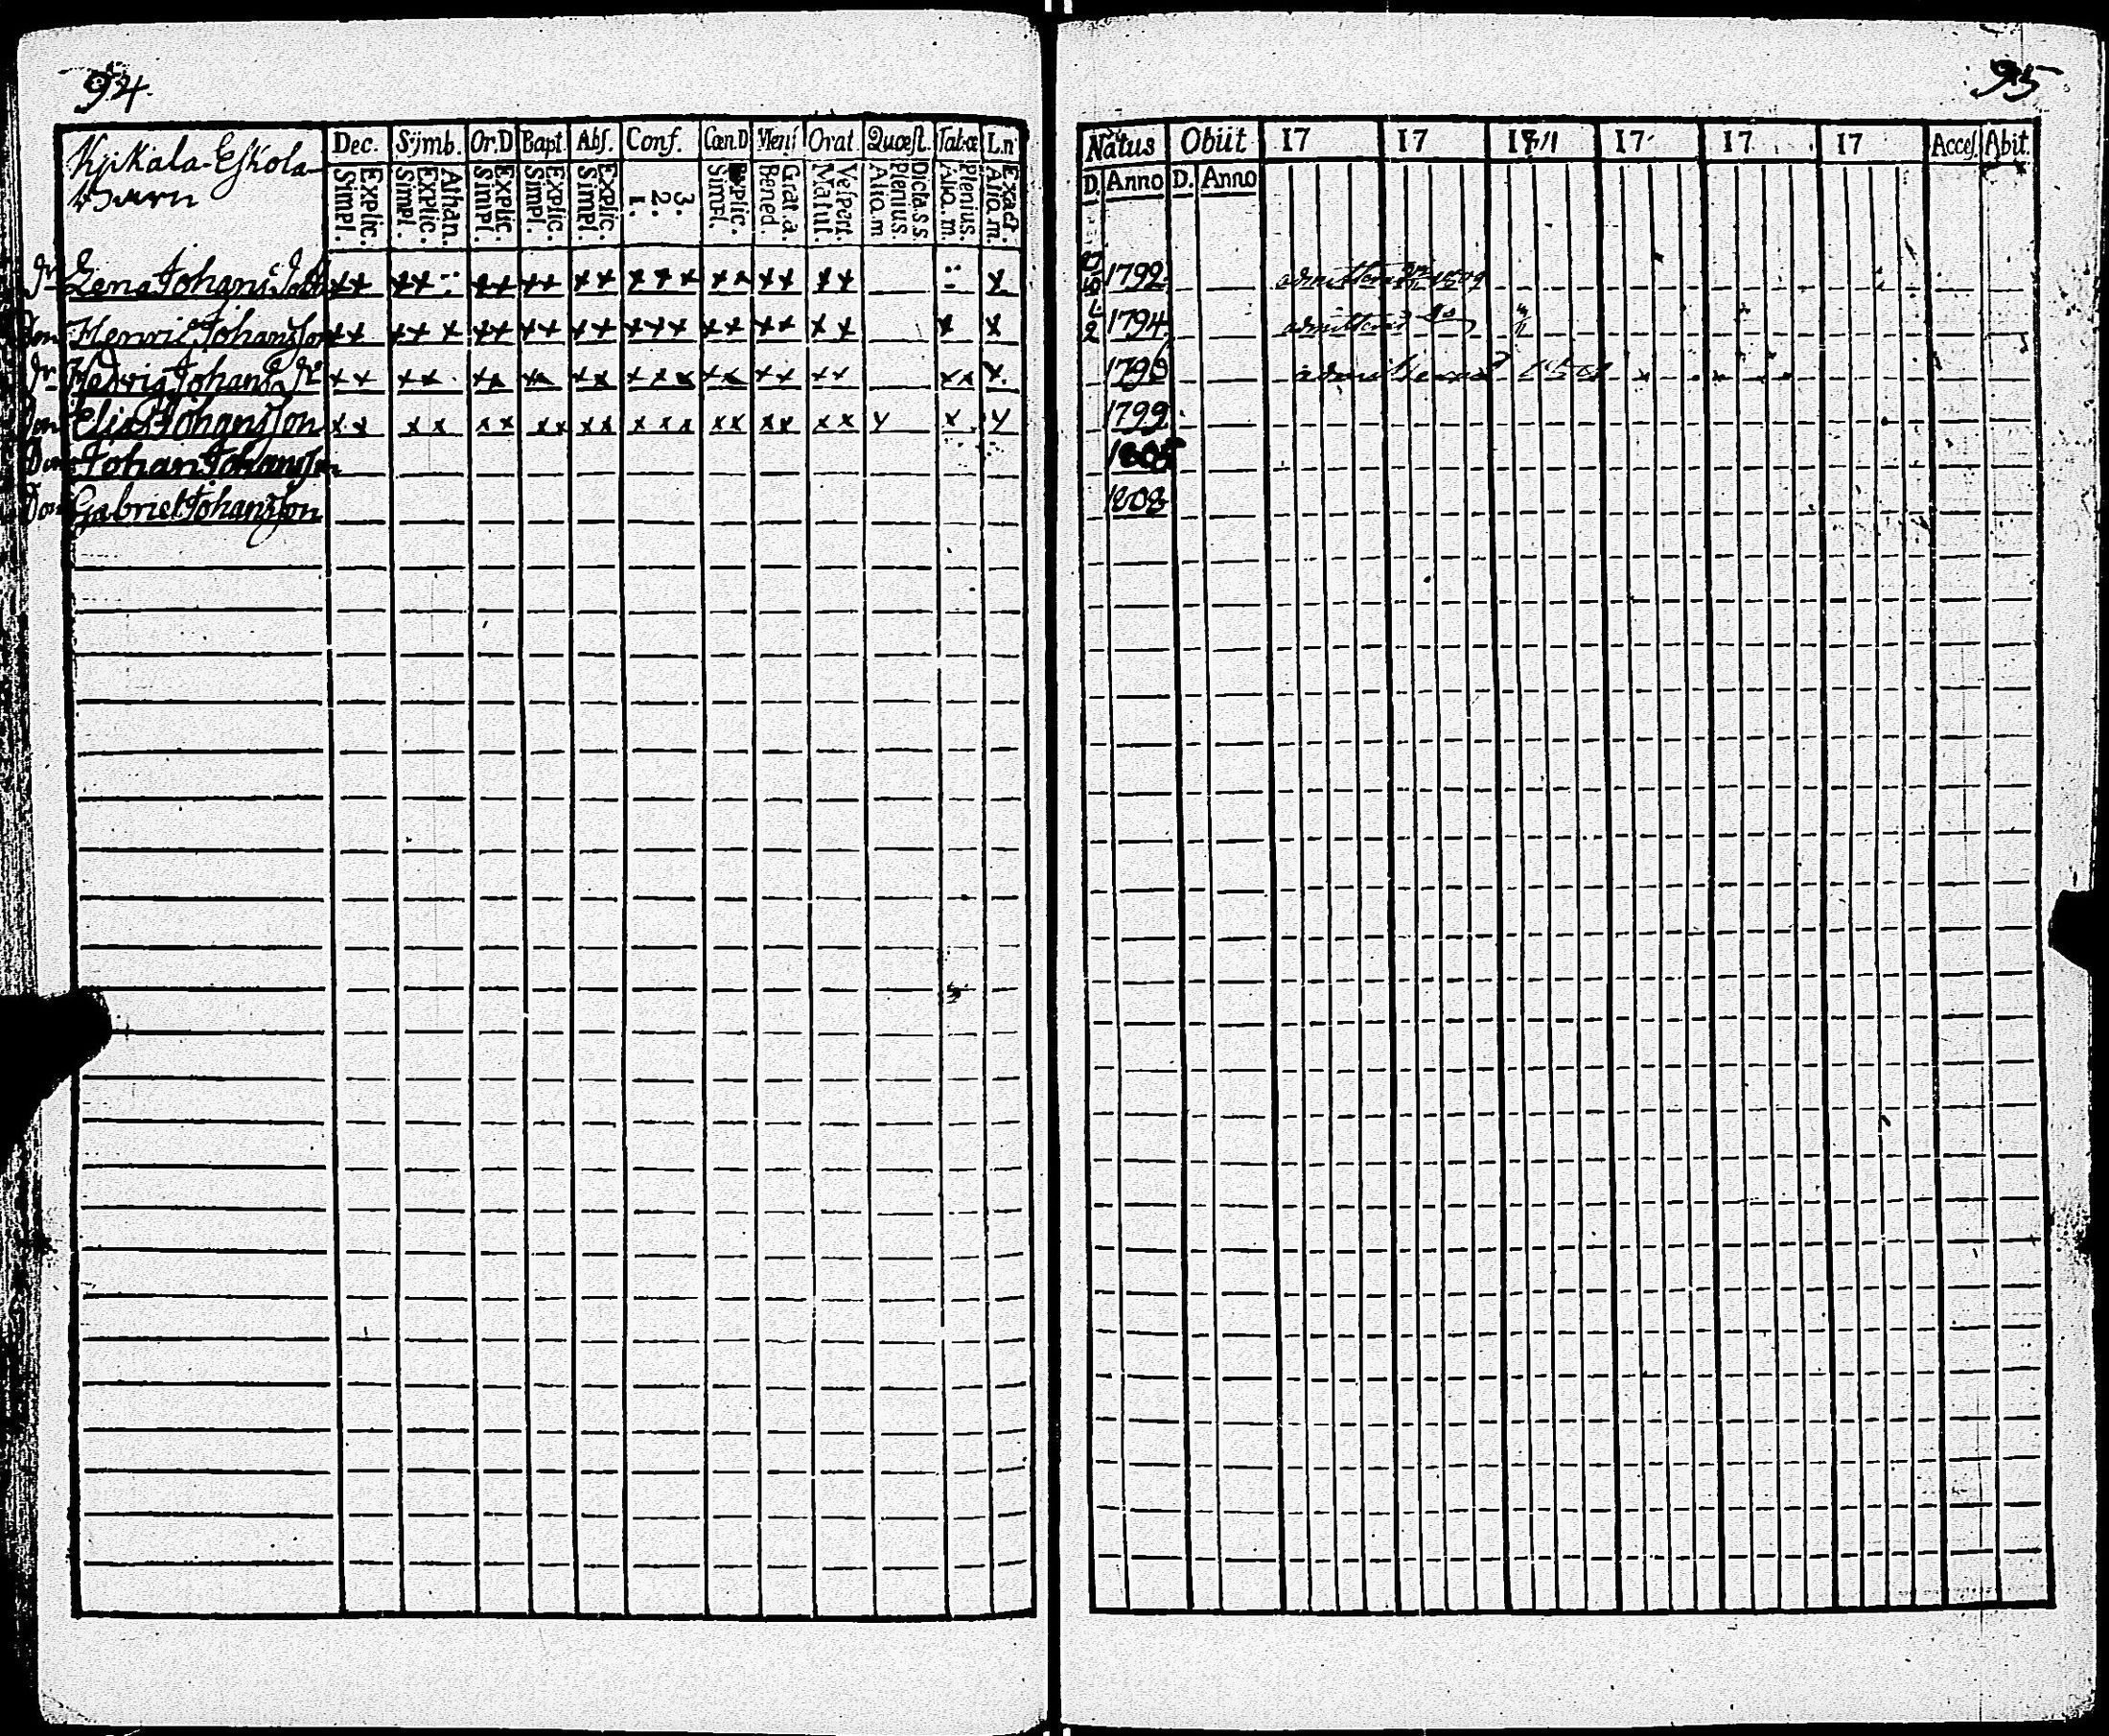 94.
Kyikala Eskola
Barn
Dec. Sÿmb. Or.D Bapt. Abs. Conf. Cœn.D Mens Orat. Quæst. Tab.œ L.n
Explic. Simpl. Athan. Explic. Simpl. Explic. Simpl. Explic. Simpl. Explic. Simpl. 3. 2. 1. Explic. Simpl. Grat.a. Bened. Vespert. Matut. Dicta.s.s. Plenius. Alio.m Plenius. Alio..m. Exact. Alio.m.
Lena Johans
Don Henric Johansson
Hedvig Johans
Don Elias Johansson
Don Johan Johansson
Don Gabriel Johansson
95
Natus Obiit 17 17 1811 17 17 17 Acces. Abit.
D. Anno D. Anno
1792 admitterad 1809
2 1794 admitterad
1796 admitterad
1799
1805
1808